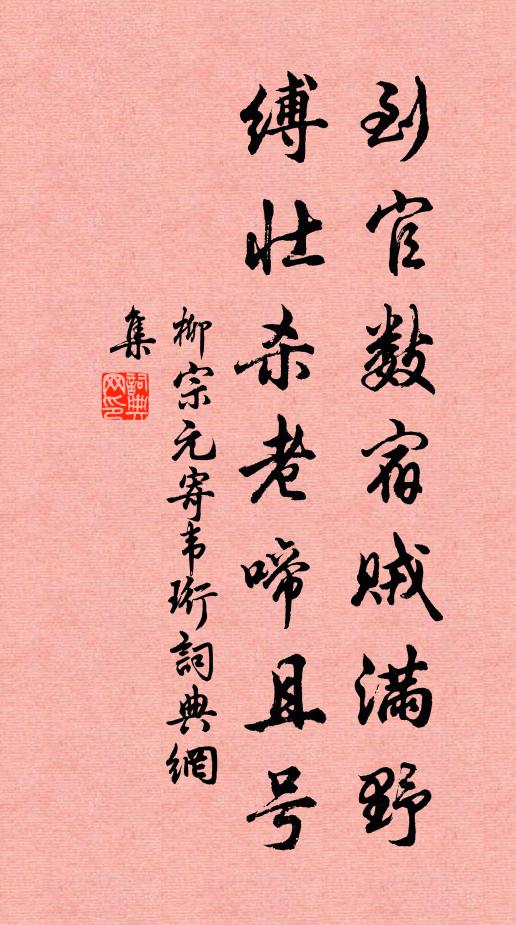 到官数宿贼满野
缚壮杀老啼且号
柳宗元寄韦珩詞典網
集
詞典网印